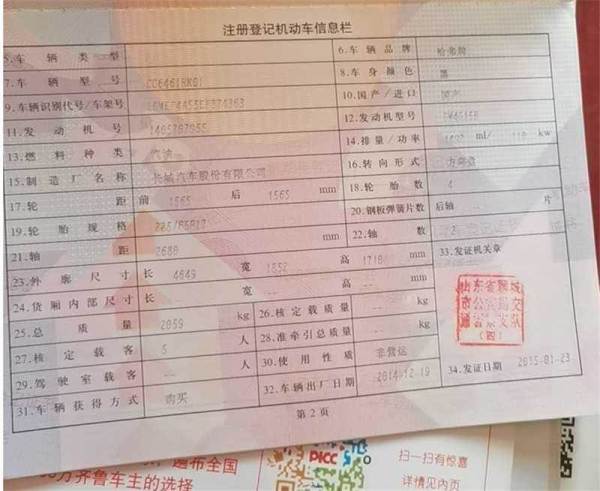 注册登记机动车信息栏
5.车辆类型 6.车辆品牌 哈弗牌
7.车辆型号 CC6461RK01 8.车身颜色 黑
9.车辆识别代号/车架号 10.国产/进口 国产
11.发动机号 12.发动机型号
13.燃料种类 汽油 14.排量/功率 ml/ kw
15.制造厂名称 长城汽车股份有限公司 16.转向形式 方向盘
17.轮距 前 1565 后 1565 mm 18.轮胎数 4
19.轮胎规格 20.钢板弹簧片数 后轴 片
21.轴距 2680 mm 22.轴数 2
23.外廓尺寸 长 4649 宽 1852 高 mm 33.发证机关章
24.货厢内部尺寸 长 宽 高 mm
25.总质量 2059 kg 26.核定载质量 kg
27.核定载客 5 人 28.准牵引总质量 kg
29.驾驶室载客 人 30.使用性质 非营运
31.车辆获得方式 购买 32.车辆出厂日期 2014-12-19 34.发证日期 2015-01-23
山东省聊城
市公安局交
(四)
第2页
遍布全国
万齐鲁车主的选择
PICC
扫一扫有惊喜
详情见内页